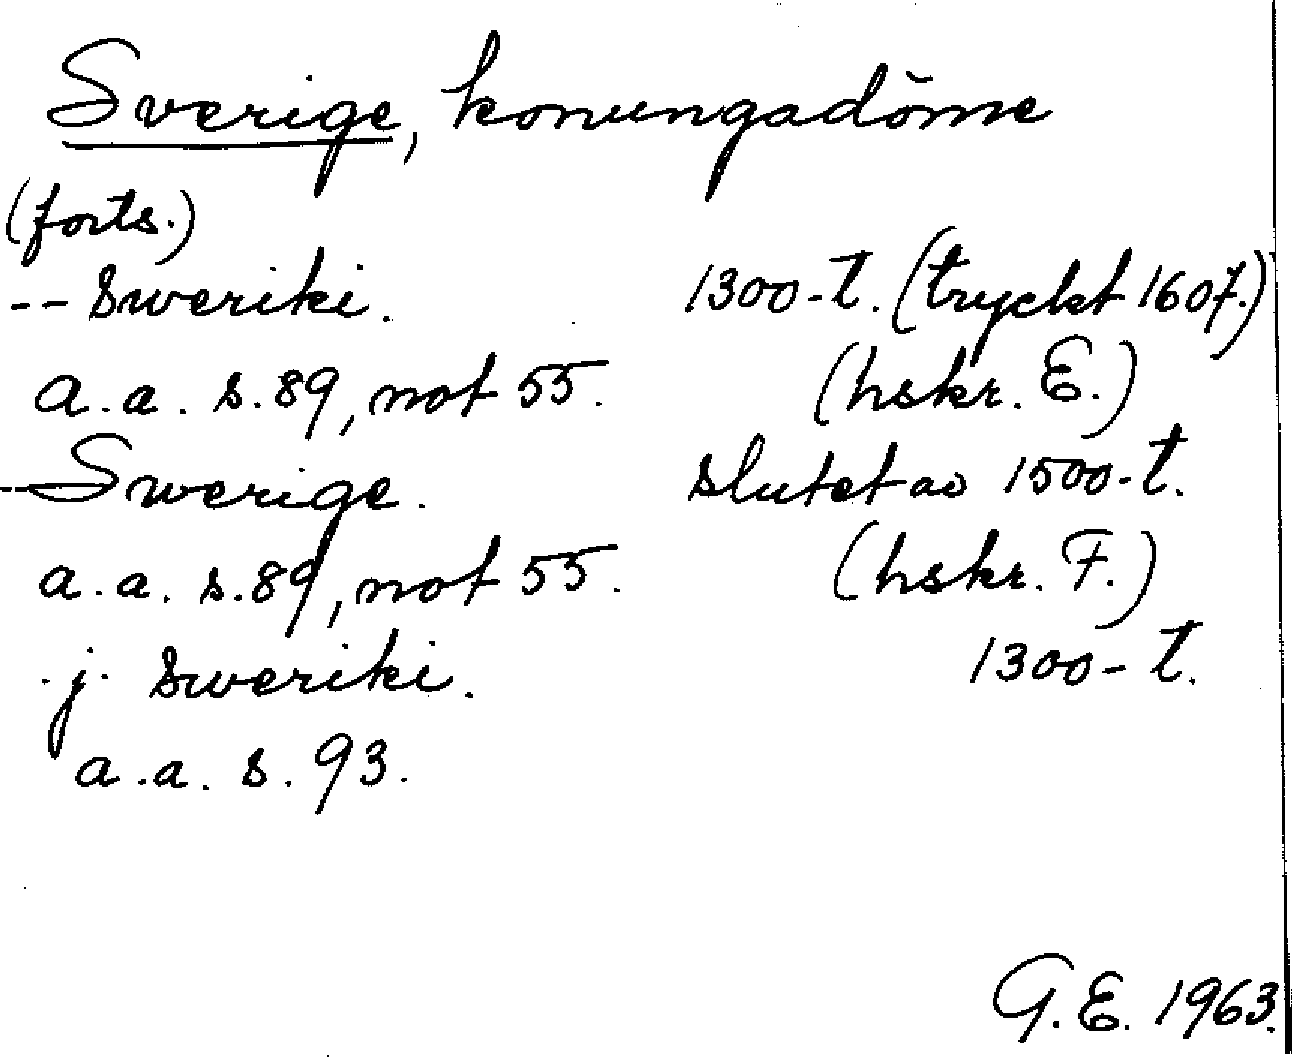 Sverige, konungadöme
(forts.)
-- Sweriki. 1300-t. (tryckt 1607.)
a.a. s.89, not 55. (hskr. E.)
-- Swerige. slutet av 1500-t.
a.a. s.89, not 55. (hskr. F.)
j. Sweriki. 1300-t.
a.a. s. 93.
G.E. 1963.